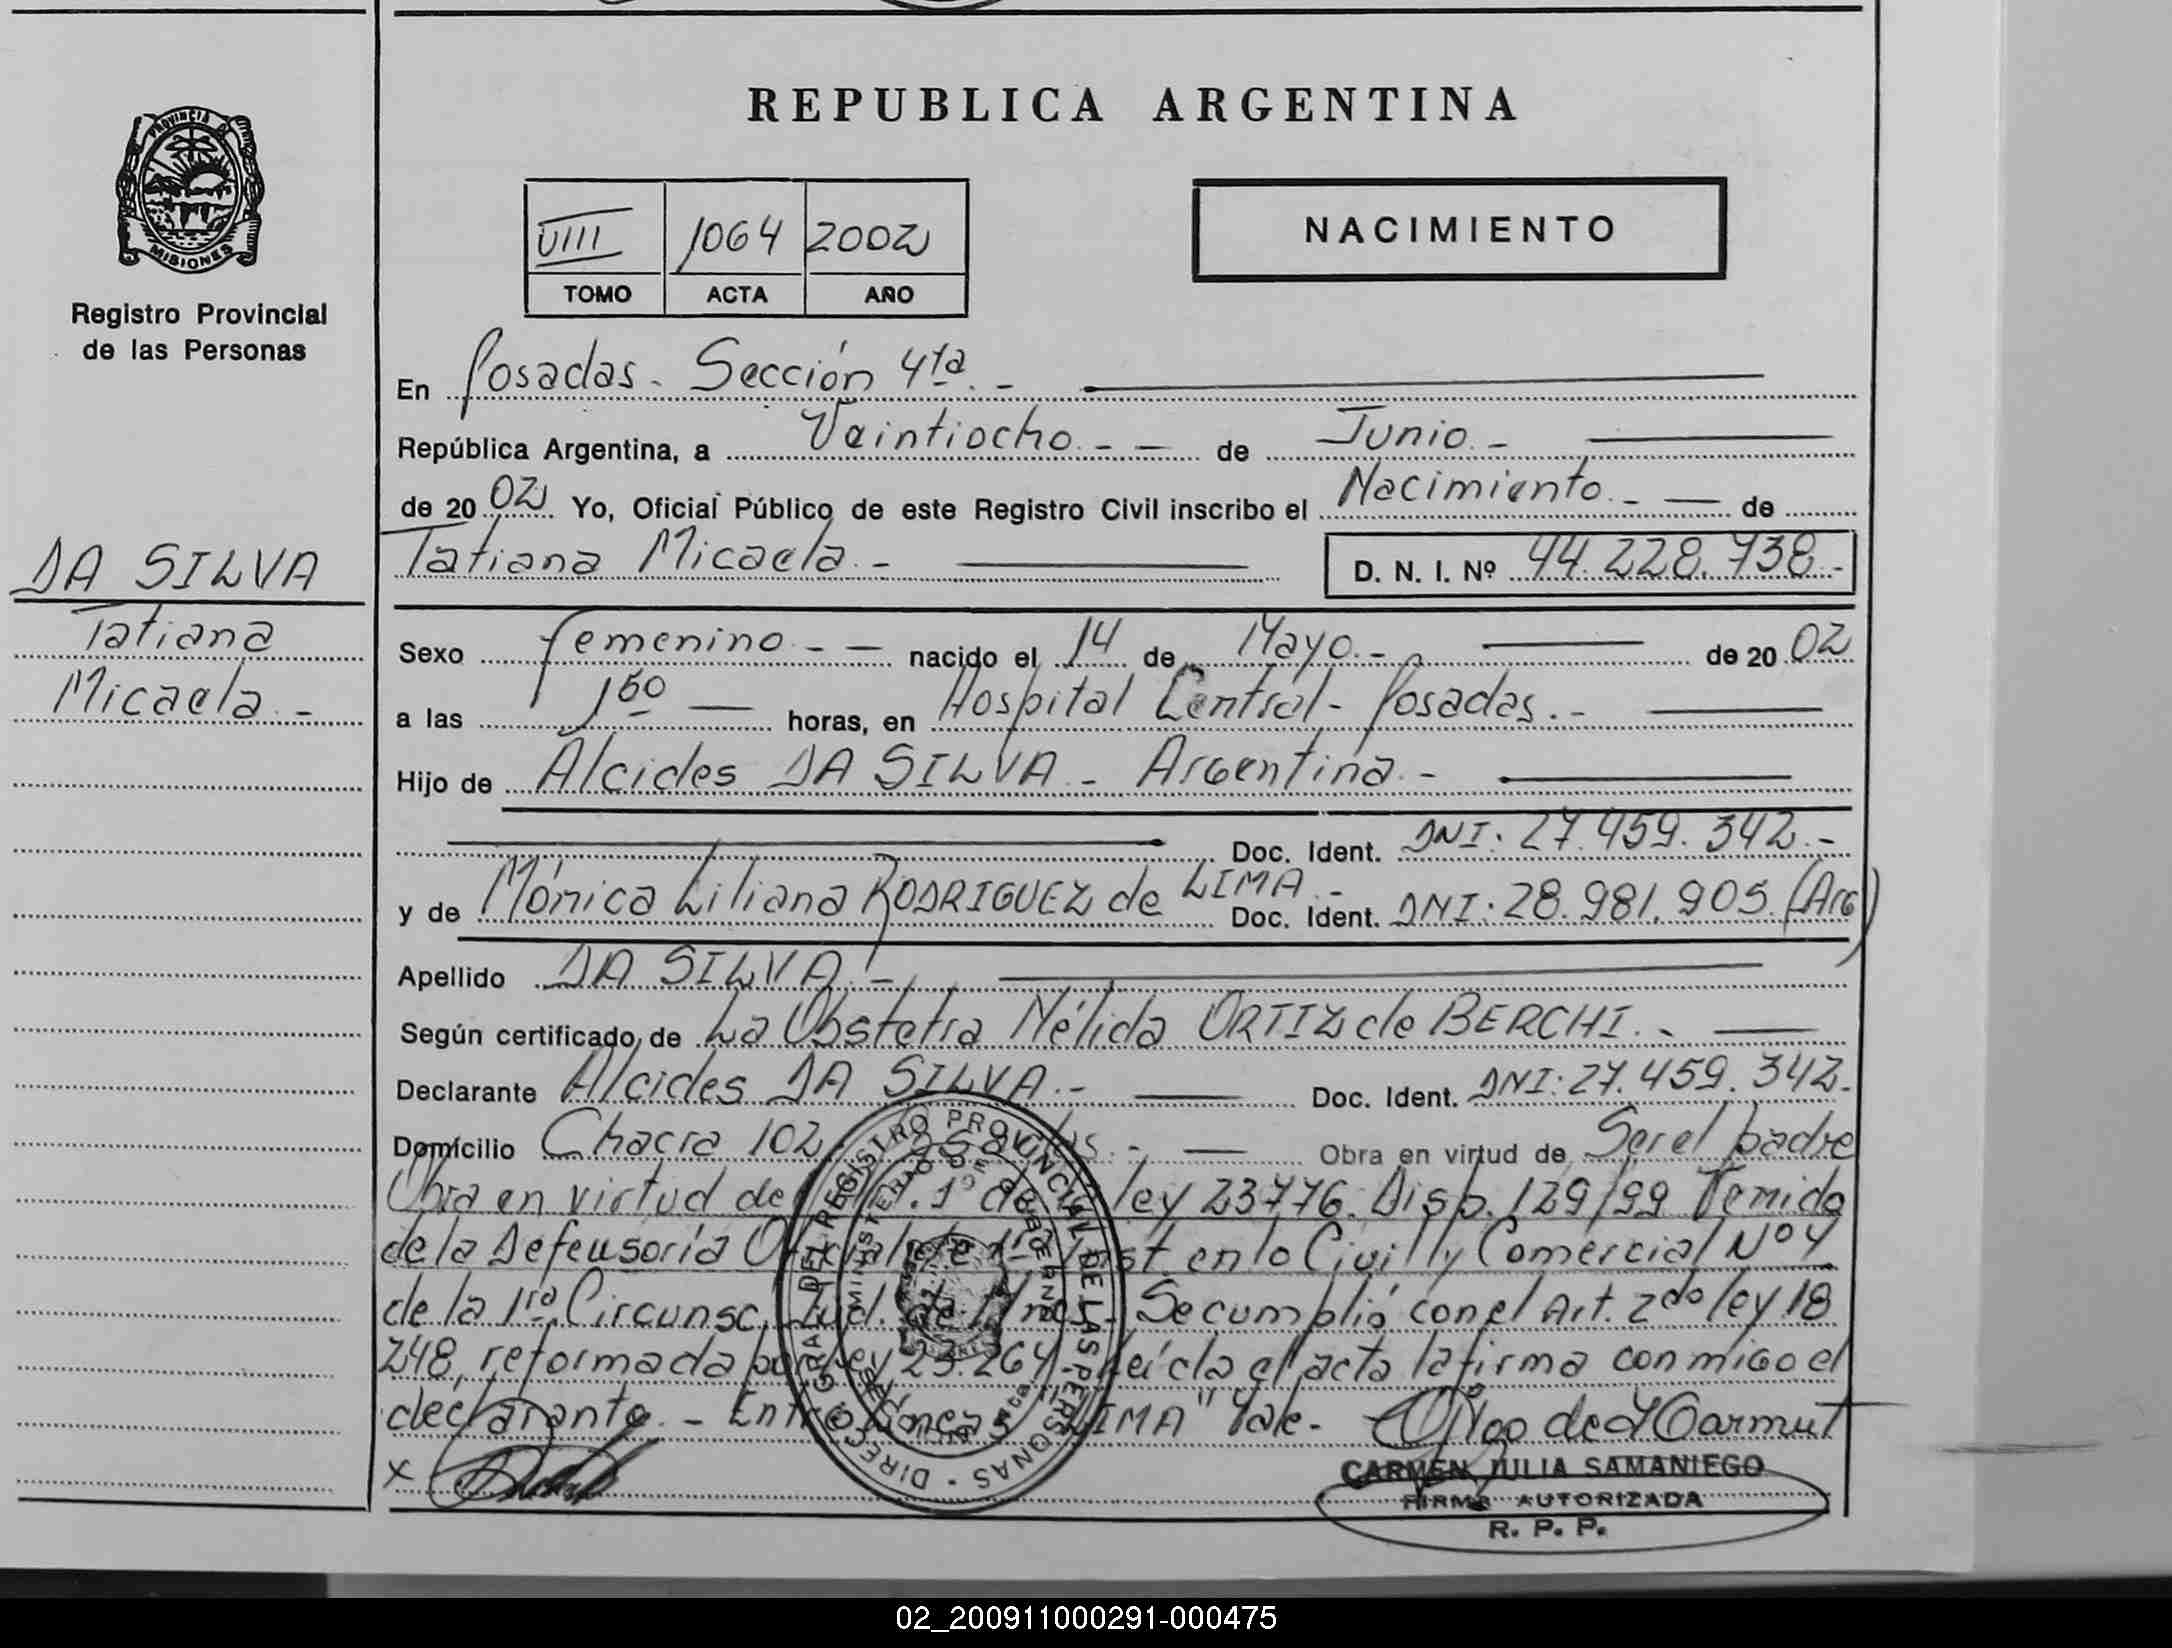 REPUBLICA ARGENTINA
PROVINCIA DE
MISIONES
Registro Provincial
de las Personas
VIII 1064 2002
TOMO ACTA AÑO
NACIMIENTO
En Posadas - Sección 4ta. -
República Argentina, a Veintiocho. - - de Junio. -
de 20 02 Yo, Oficial Público de este Registro Civil inscribo el Nacimiento. - - de
DA SILVA
Tatiana
Micaela. -
Tatiana Micaela. - D. N. I. Nº 44.228.738.-
Sexo femenino. - - nacido el 14 de Mayo. - de 20 02
a las 1 50 - horas, en Hospital Central - Posadas. -
Hijo de Alcides DA SILVA. - Argentina. -
Doc. Ident. DNI: 27.459.342.-
y de Mónica Liliana RODRIGUEZ de LIMA. - Doc. Ident. DNI: 28.981.905. (Arg)
Apellido DA SILVA. -
Según certificado de La Obstetra Nélida ORTIZ de BERCHI. -
Declarante Alcides DA SILVA. - Doc. Ident. DNI: 27.459.342.
Domicilio Chacra 102 Obra en virtud de Ser el padre
Obra en virtud de 1º de ley 23776. Disp. 129/99 Venida
de la Defensoría Oficial de 1ra Inst. en lo Civil y Comercial Nº 4
de la 1ra. Circunsc. Jud. de Mnes. Se cumplió con el Art. 2do ley 18
248, reformada por ley 23.264 - Leída el acta la firma conmigo el
declarante. - Entre líneas "LIMA" Vale. -
x
CARMEN JULIA SAMANIEGO
FIRMA AUTORIZADA
R. P. P.
DIRECC. GRAL. DEL REGISTRO PROVINCIAL DE LAS PERSONAS
MINISTERIO DE GOBIERNO
MISIONES
02_200911000291-000475